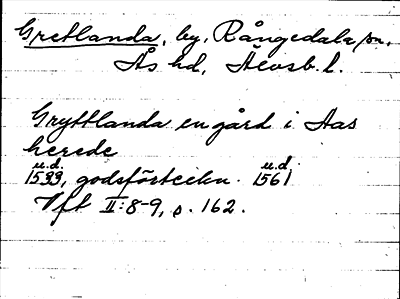 Gretlanda, by, Rångedala sn,
Ås hd, Älvsb. l.
Gryttlanda en gård i Aas
herede
u.d. u.d.
1533, godsförteckn. 1561
Vft II:8-9, s. 162.